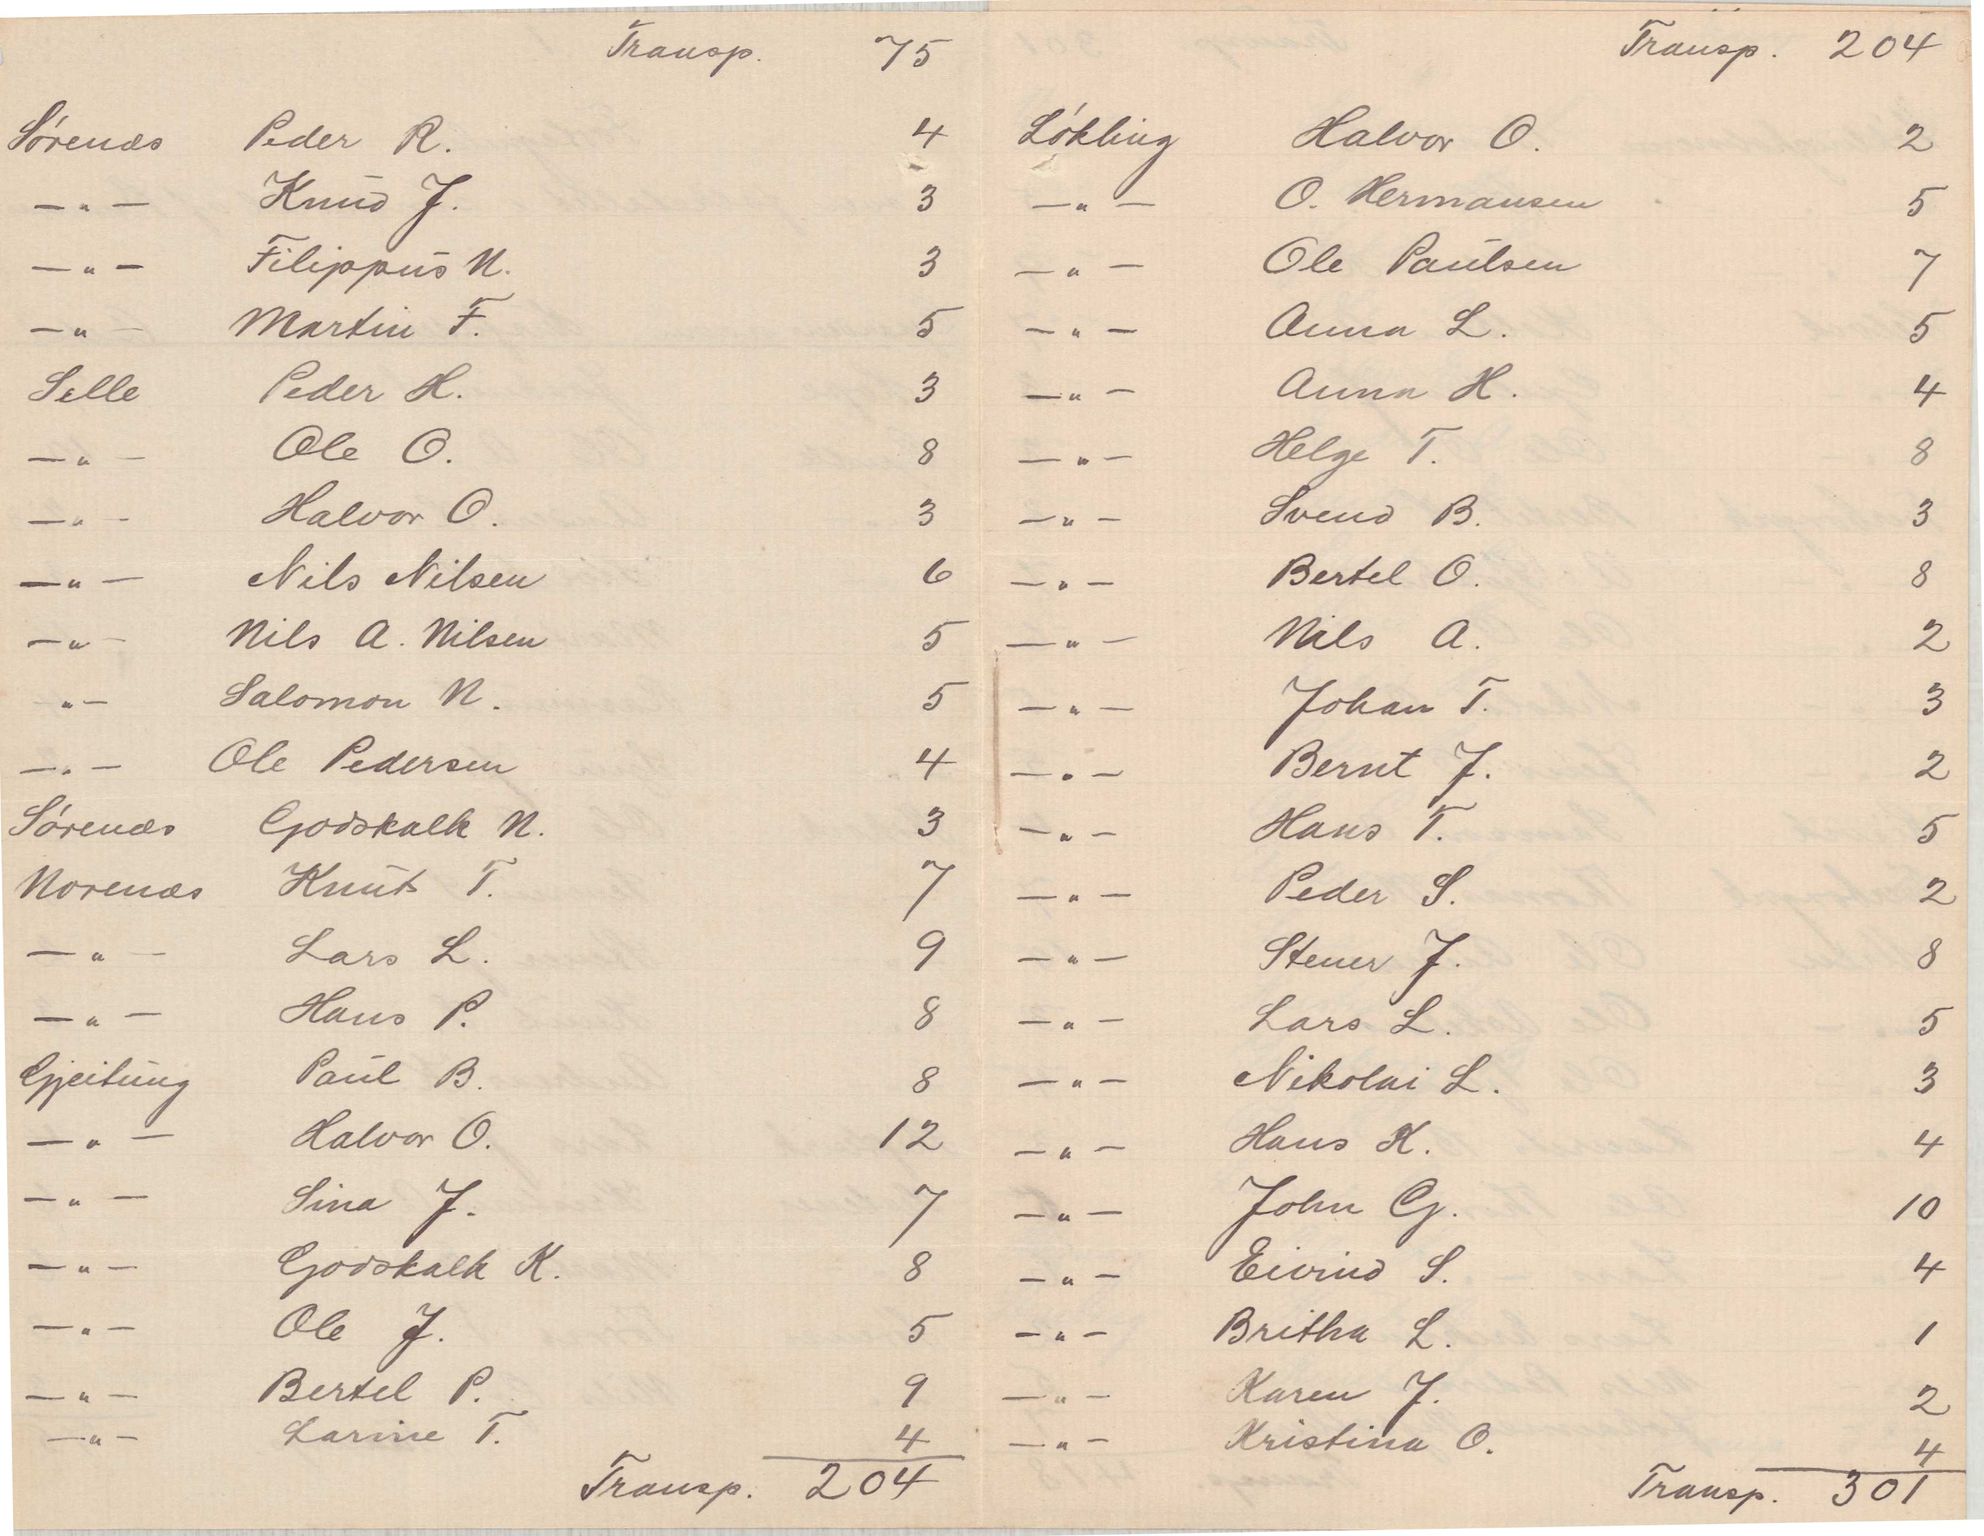 Transp. 75
Sørenæs Peder R. 4
—"— Knud J. 3
—"— Filippus N. 3
—"— Martin F. 5
Selle Peder H. 3
—"— Ole O. 8
—"— Halvor O. 3
—"— Nils Nilsen 6
—"— Nils A. Nilsen 5
"— Salomon N. 5
—"— Ole Pedersen 4
Sørenæs Godskalk N. 3
Norenæs Knut T. 7
—"— Lars L. 9
—"— Hans P. 8
Gjeitung Paul B. 8
—"— Halvor O. 12
—"— Sina J. 7
—"— Godskalk K. 8
—"— Ole J. 5
—"— Bertel P. 9
—"— Larine T. 4
Transp. 204
Transp. 204
Løkling Halvor O. 2
—"— O. Hermansen 5
—"— Ole Paulsen 7
—"— Anna L. 5
—"— Anna H. 4
—"— Helge T. 8
—"— Svend B. 3
—"— Bertel O. 8
—"— Nils A. 2
—"— Johan T. 3
—"— Bernt J. 2
—"— Hans T. 5
—"— Peder S. 2
—"— Stener J. 8
—"— Lars L. 5
—"— Nikolai L. 3
—"— Hans K. 4
—"— John G. 10
—"— Eivind S. 4
—"— Britha L. 1
—"— Karen J. 2
—"— Kristina O. 4
Transp. 301